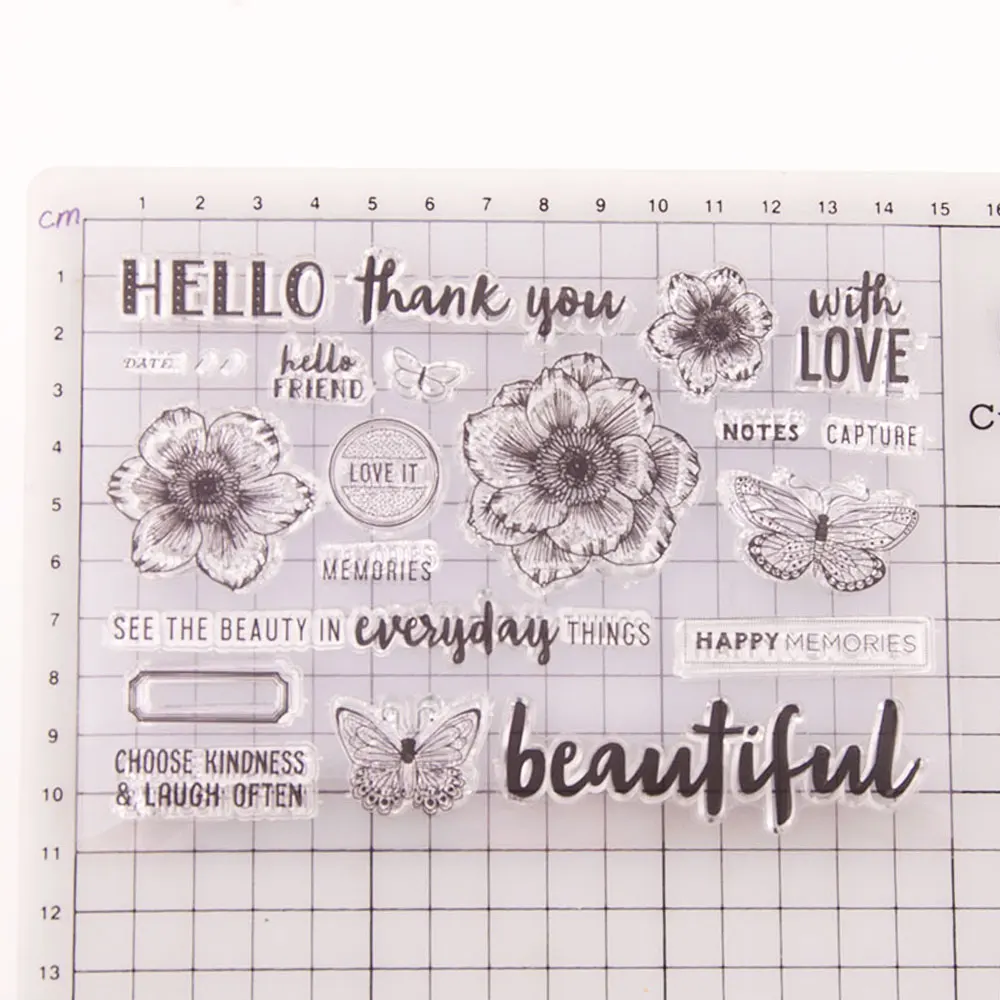 cm
1 2 3 4 5 6 7 8 9 10 11 12 13 14 15 16
1
2
3
4
5
6
7
8
9
10
11
12
13
HELLO
thank you
with
LOVE
DATE / /
hello
FRIEND
NOTES
CAPTURE
LOVE IT
MEMORIES
SEE THE BEAUTY IN everyday THINGS
HAPPY MEMORIES
CHOOSE KINDNESS
& LAUGH OFTEN
beautiful